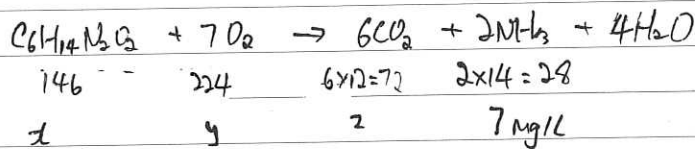 C6H14N2O2 + 7O2 → 6CO2 + 2NH3 + 4H2O
146 -- 224 6×12=72 2×14=28
x y z 7mg/L